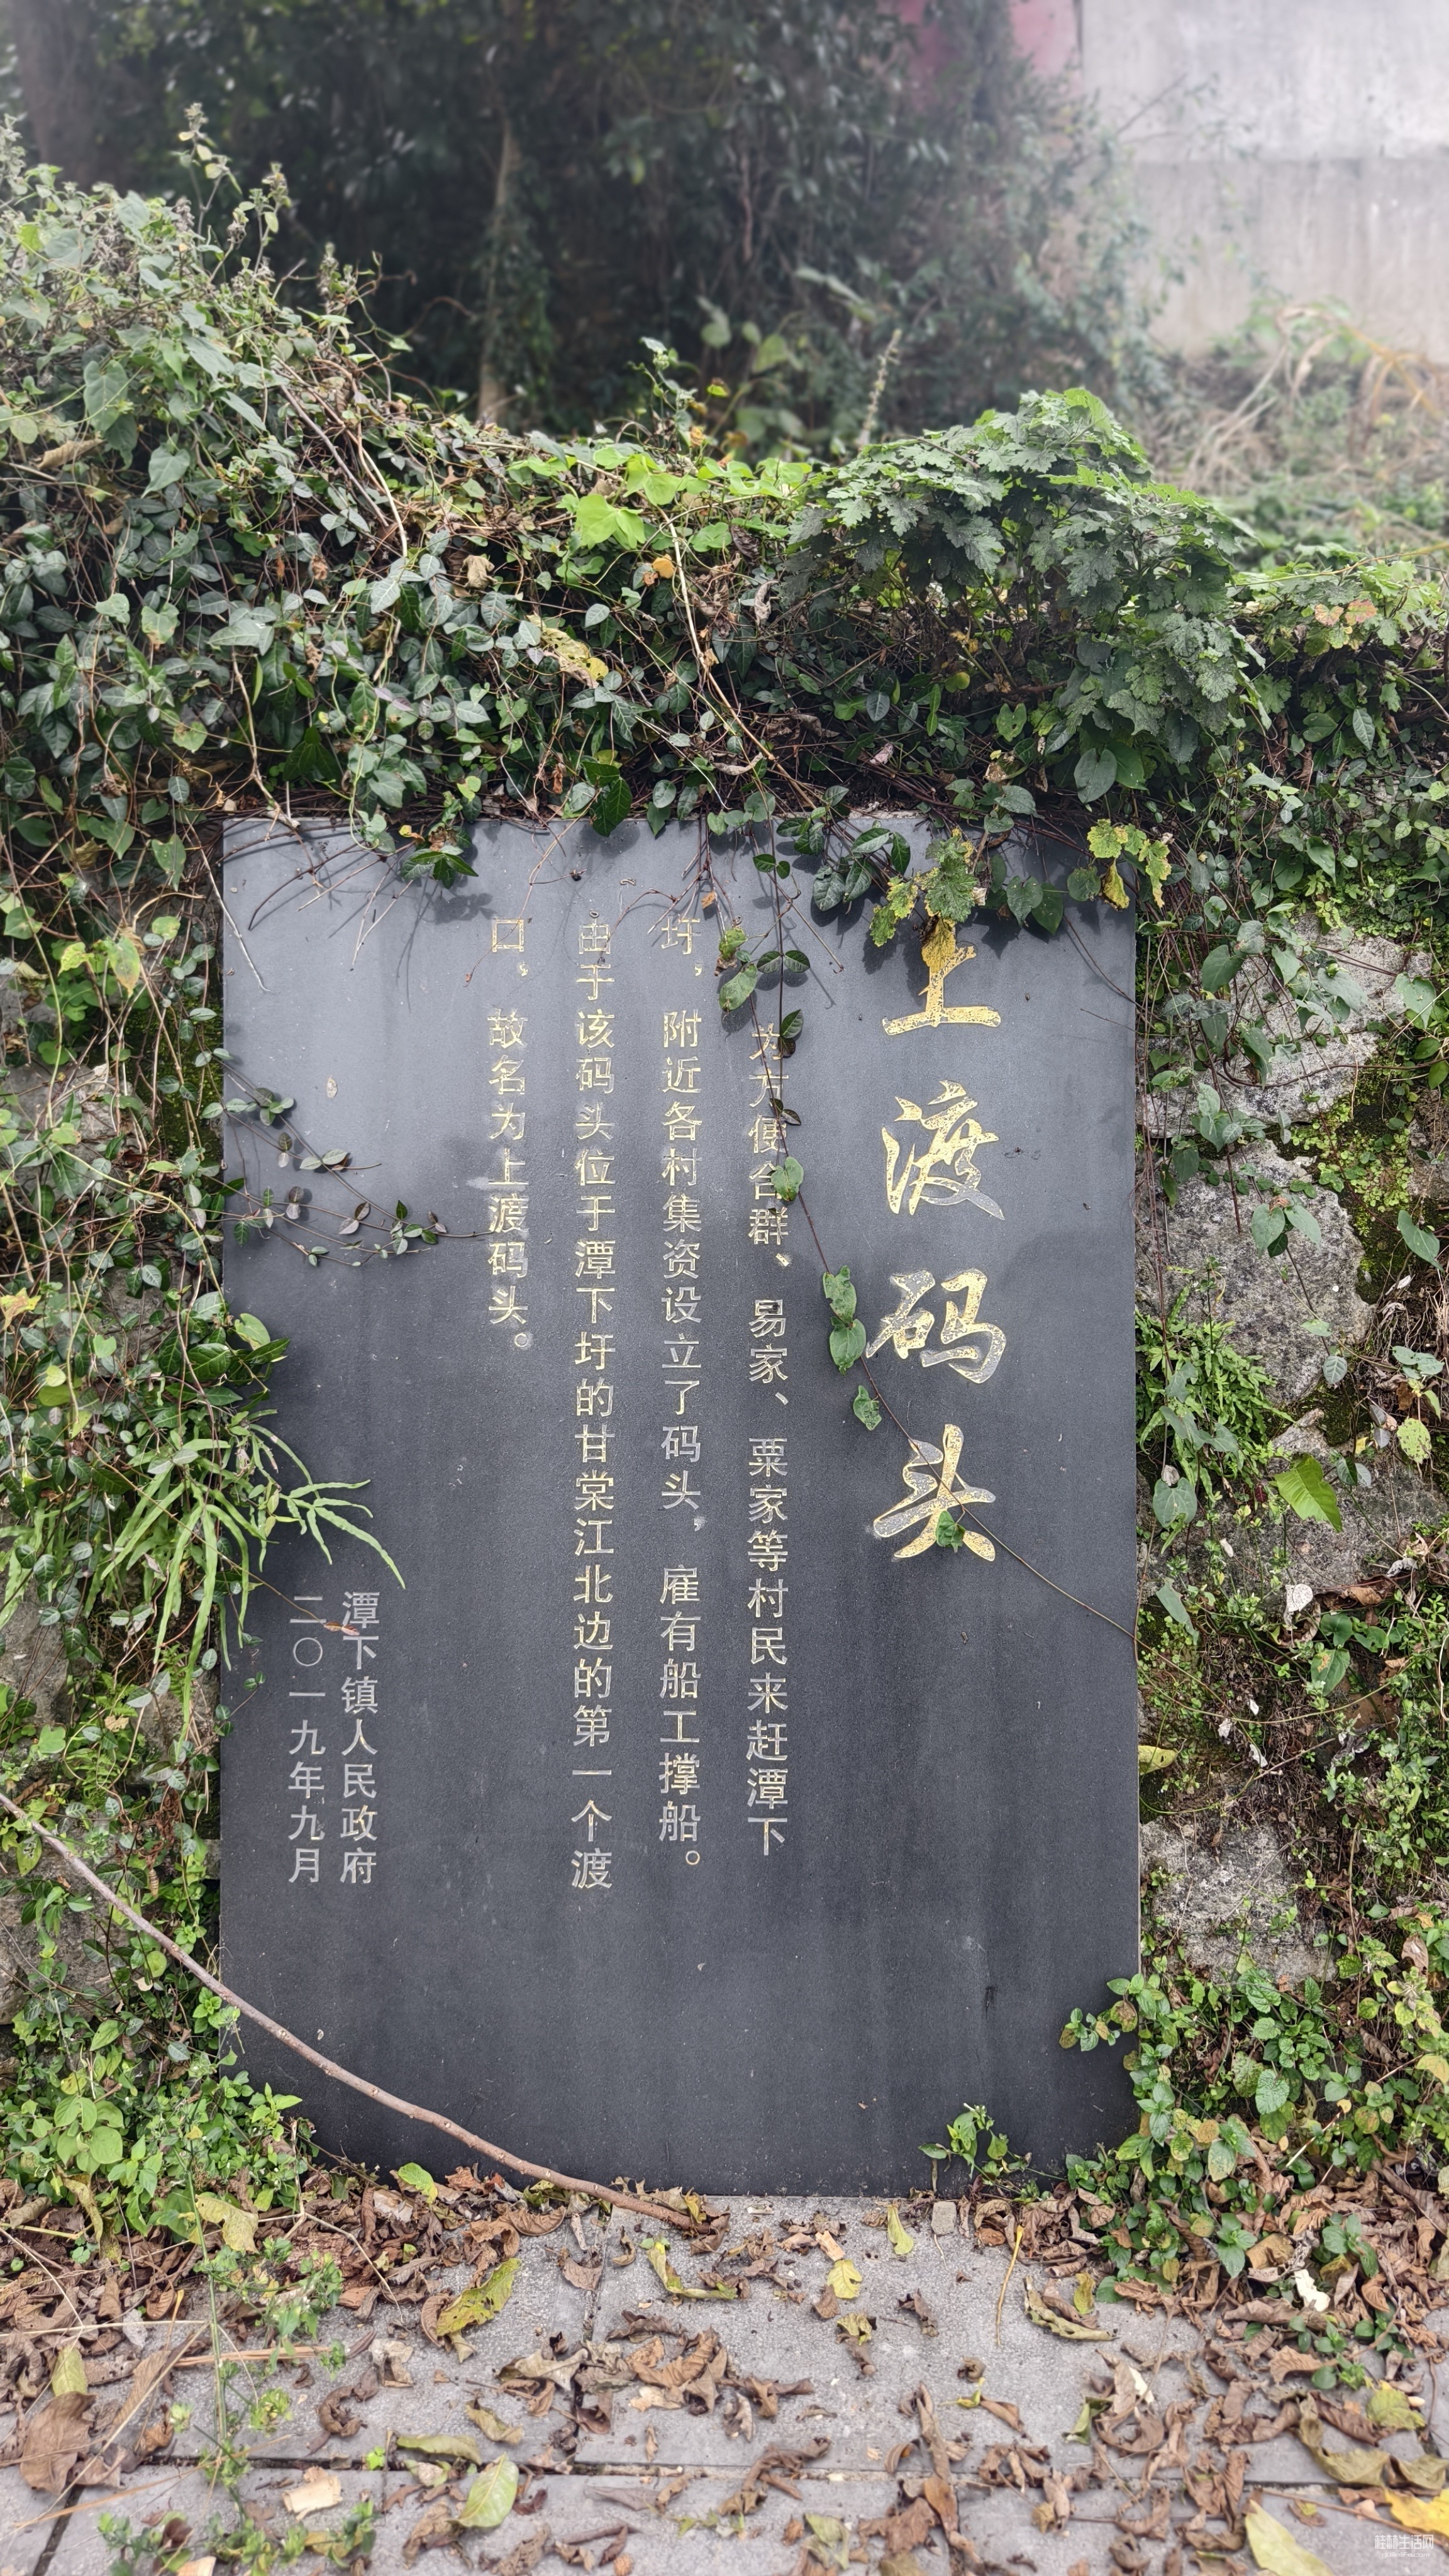 上渡码头
为方便合群、易家、粟家等村民来赶潭下
圩，附近各村集资设立了码头，雇有船工撑船。
由于该码头位于潭下圩的甘棠江北边的第一个渡
口，故名为上渡码头。
潭下镇人民政府
二〇一九年九月
桂林生活网